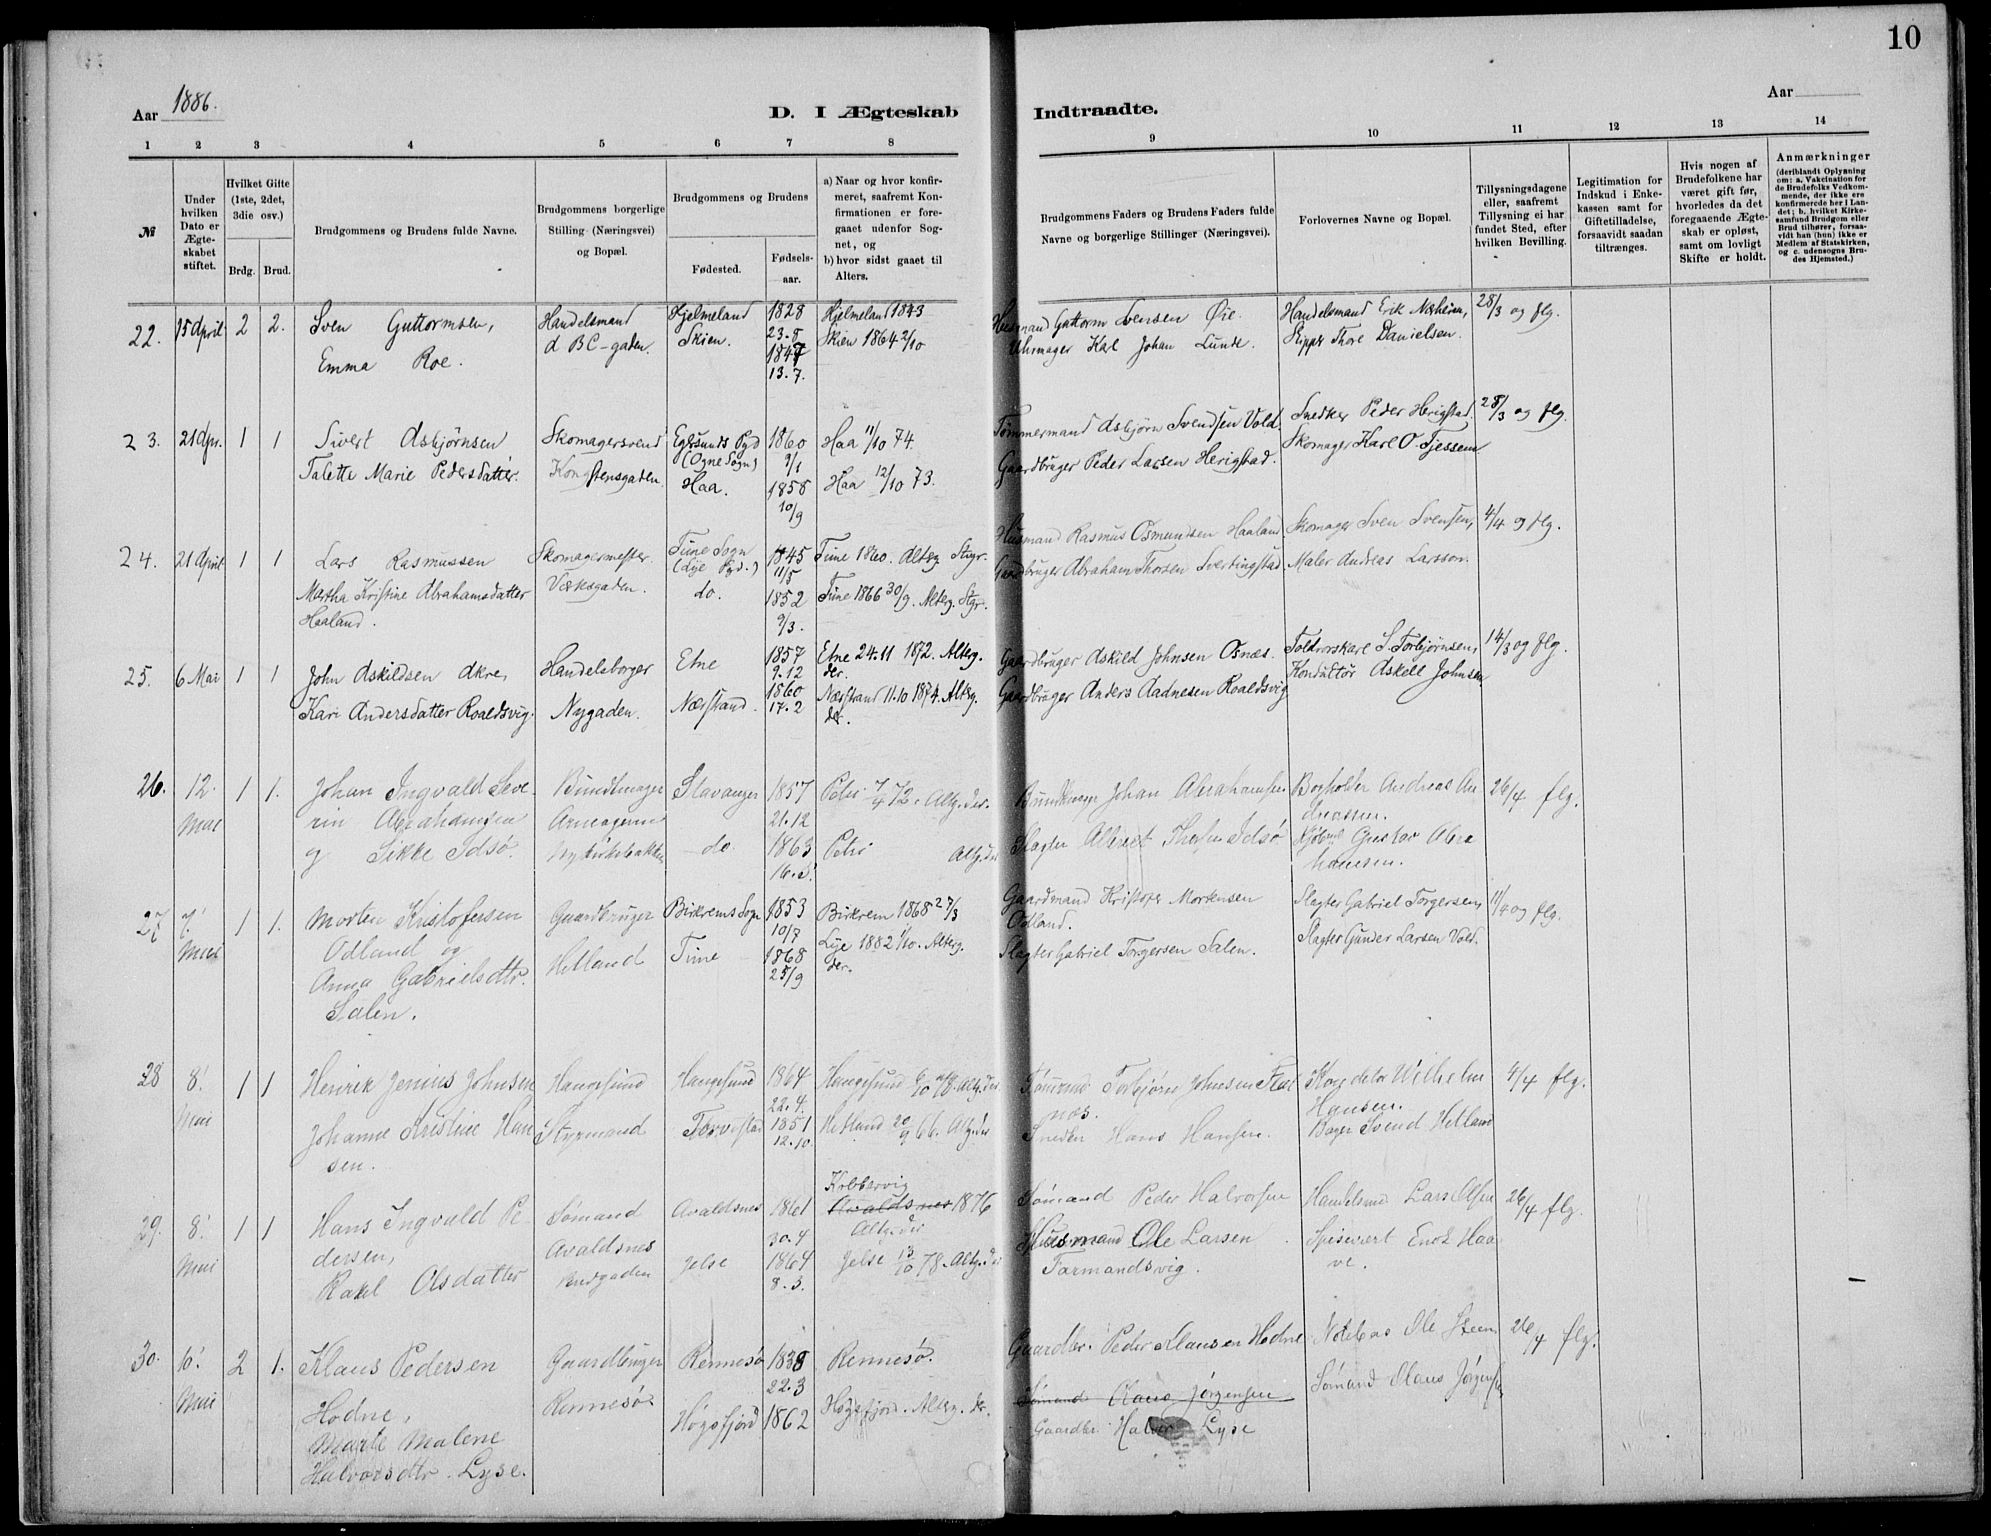 10
Aar 1886.
D. I Ægteskab Indtraadte.
Aar
1 2 3 4 5 6 7 8 9 10 11 12 13 14
№
Under hvilken Dato er Ægteskabet stiftet.
Hvilket Gifte (1ste, 2det, 3die osv.)
Brdg. Brud.
Brudgommens og Brudens fulde Navne.
Brudgommens borgerlige Stilling (Næringsvei) og Bopæl.
Brudgommens og Brudens
Fødested.
Fødselsaar.
a) Naar og hvor konfirmeret, saafremt Konfirmationen er foregaaet udenfor Sognet, og
b) hvor sidst gaaet til Alters.
Brudgommens Faders og Brudens Faders fulde Navne og borgerlige Stillinger (Næringsvei).
Forlovernes Navne og Bopæl.
Tillysningsdagene eller, saafremt Tillysning ei har fundet Sted, efter hvilken Bevilling.
Legitimation for Indskud i Enkekassen samt for Giftetilladelse, forsaavidt saadan tiltrænges.
Hvis nogen af Brudefolkene har været gift før, hvorledes da det foregaaende Ægteskab er opløst, samt om lovligt Skifte er holdt.
Anmærkninger
(deriblandt Oplysning om: a. Vakcination for de Brudefolks Vedkommende, der ikke ere konfirmerede her i Landet; b. hvilket Kirkesamfund Brudgom eller Brud tilhører, forsaavidt han (hun) ikke er Medlem af Statskirken, og c. udensogns Brudes Hjemsted.)
22. 15 April 2 2. Sven Guttormsen, Handelsmand Hjelmeland 1828 Hjelmeland 1843 Husmand Guttorm Svensen Øie. Handelsmand Erik Næheim, 28/3 og flg.
Emma Roe. d BC-gaden. Skien. 23.8 1847 13.7. Skien 1864 2/10 Uhrmager Karl Johan Lunde Skipper Thore Danielsen.
23. 21 Apr. 1 1 Sivert Asbjørnsen Skomagersvend Egersunds Pgd (Ogne Sogn) 1860 9/1 Haa 11/10 74. Tømmermand Asbjørn Svendsen Vold. Snedker Peder Herigstad, 28/3 og flg.
Talette Marie Pedersdatter. Kongstensgaden. Haa. 1858 10/9 Haa 12/10 73. Gaardbruger Peder Larsen Herigstad. Skomager Karl O. Tjessem
24. 21 April 1 1 Lars Rasmussen Skomagermester. Time Sogn (Lye Pgd.) 1845 11/5 Time 1860. Altrg Styr. Husmand Rasmus Osmundsen Haaland Skomager Sven Svensen, 4/4 og flg.
Martha Kristine Abrahamsdatter Haaland. Værksgaden. do. 1852 9/3. Time 1866 30/9. Alterg. Styr. Gaardbruger Abraham Thorsen Svertingstad Maler Andreas Larsson.
25. 6 Mai 1 1 John Askildsen Akre, Handelsborger Etne 1857 9.12 Etne 24.11 1872. Alterg. der. Gaardbruger Askild Johnsen Osnæs. Toldrorskarl S. Torbjørnsen, 14/3 og flg.
Kari Andersdatter Roaldsvig. Nygaden. Nærstrand. 1860 17.2 Nærstrand 11.10 1874. Alterg. der. Gaardbruger Anders Aadnesen Roaldsvig Konduktør Askell Johnsen
26. 12. Mai 1 1. Johan Ingvald Severin Abrahamsen Bundtmager Stavanger 1857 21.12 Petri 7/4 72. Altg. der. Bundtmager Johan Abrahamsen Bogholder Andreas Andreasen. 26/4 flg.
og Sikke Idsø. do 1863 16. Petri Altg. der Slagter Albret Idsø Gustav Abrahamsen.
27 7. Mai 1 1. Morten Kristofersen Odland og Gaardbruger Birkrems Sogn 1853 10/7 Birkrem 1868 27/3 Gaardmand Kristofer Mortensen Odland. Slagter Gabriel Torgersen, 11/4 og flg.
Anna Gabrielsdtr. Salen. Helland Time 1868 25/9 Lye 1882 1/10. Alterg. der. Slagter Gabriel Torgersen Salen. Slagter Gunder Larsen Vold.
28 8. Mai 1 1 Henrik Jenius Johnsen Haugesund Haugesund 1864 22.4. Haugesund 6/10 78. Altg. der Torbjørn Johnsen Wilhelm Hansen. 4/4 flg.
Johanne Kristine Hansen. Styrmand Torvestad 1851 12.10 Hetland 20/9 66. Altg. der Snedker Hans Hansen. Bager Svend Helland
29. 8. Mai 1 1 Hans Ingvald Pedersen, Sømand Avaldsnes Avaldsnes 1861 30.4 Kobbervig Avaldsnes 1876 Altg. der Sømand Peder Halvorsen Handelsmd Lars Olsen 26/4 flg.
Rakel Olsdatter Jelse 1864 8.3. Jelse 13/10 78. Altg. der Husmand Ole Larsen Tarmandsvig. Spisevert Enok Haave.
30. 10. Mai 2 1. Klaus Pedersen Hodne, Gaardbruger Rennesø Rennesø 1838 22.3 Rennesø. Gaardbr. Peder Klausen Hodne Ole Steen 26/4 flg.
Marte Malene Halvorsdtr. Lyse. Høgsfjord 1862 Høgsfjord. Alterg. der. Sømand Olaus Jørgensen Sømand Olaus Jørgensen
Gaardbr. Halvor Lyse